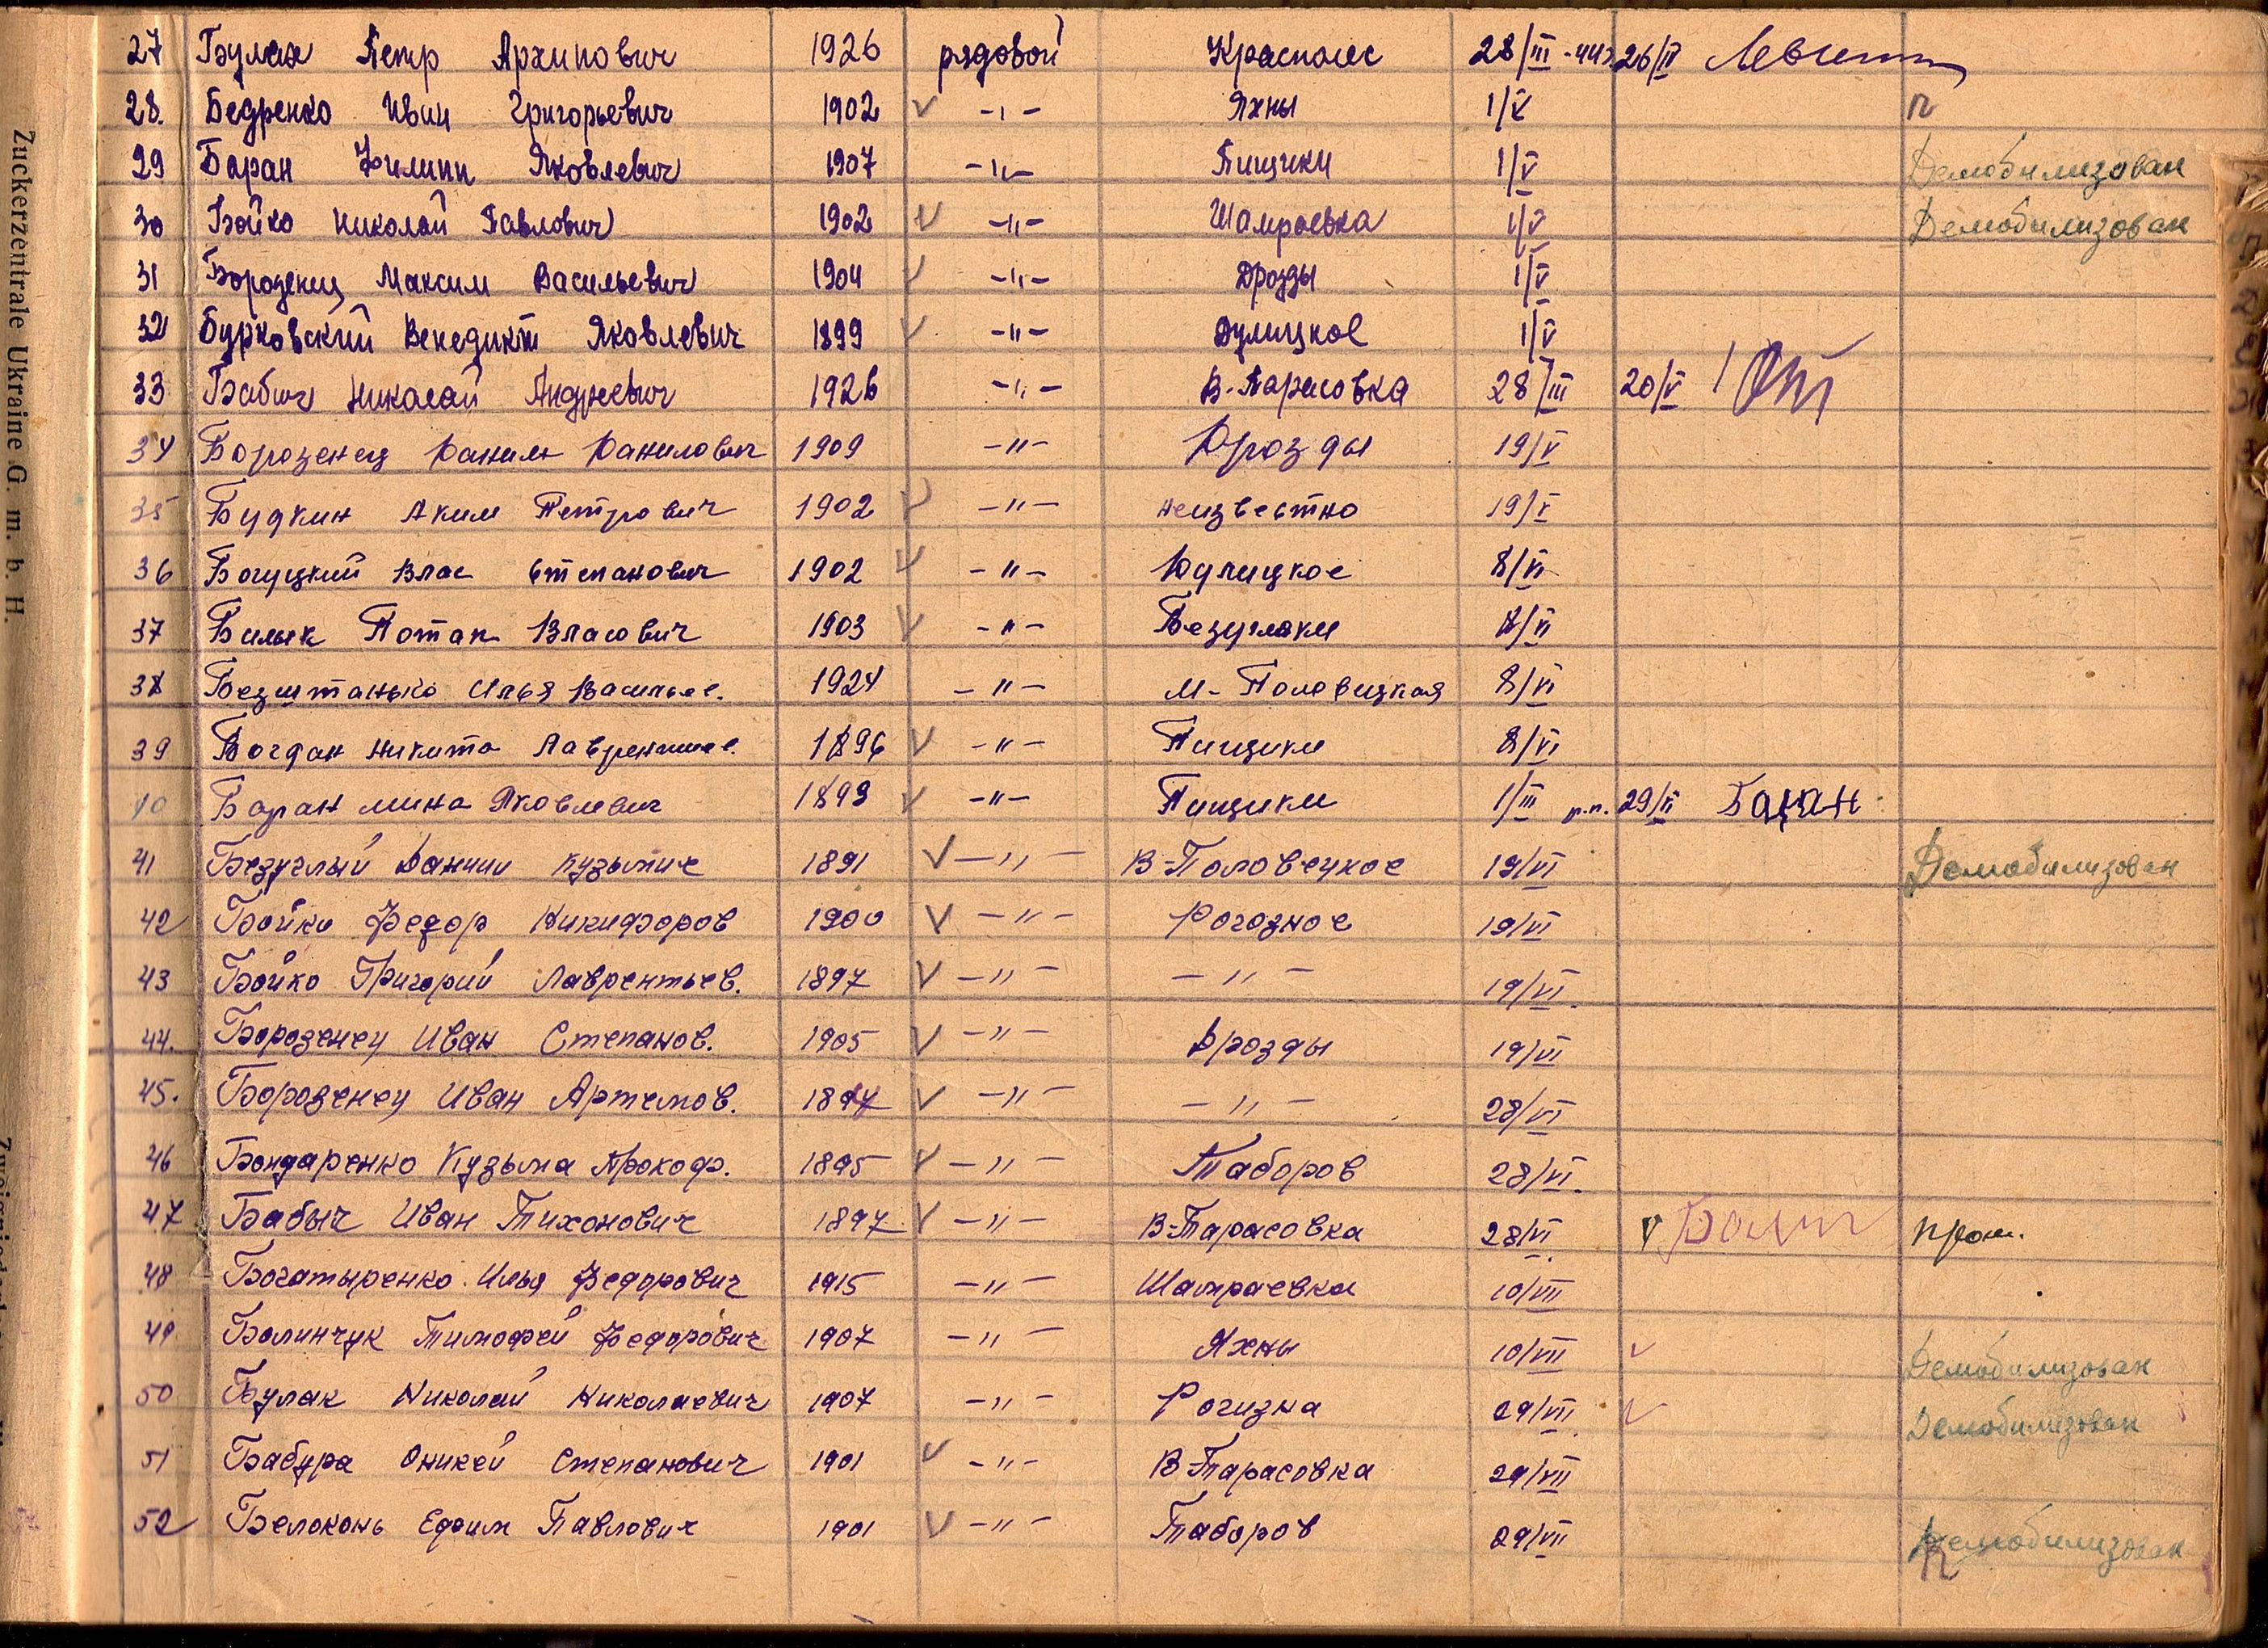 27 Булах Петр Архипович 1926 рядовой Краснолес 28/III-44г 26/IV
28. Бедренко Иван Григорьевич 1902 V -"- Яхны 1/V п
29 Баран Филипп Яковлевич 1907 -"- Пищики 1/V Демобилизован
30 Бойко Николай Павлович 1902 V -"- Шамраевка 1/V Демобилизован
31 Борозенец Максим Васильевич 1904 V -"- Дрозды 1/V
32 Бурковский Венедикт Яковлевич 1899 V -"- Дулицкое 1/V
33 Бабич Николай Андреевич 1926 -"- В-Тарасовка 28/III 20/V
34 Борозенец Данил Данилович 1909 -"- Дрозды 19/V
35 Будкин Аким Петрович 1902 V -"- неизвестно 19/V
36 Богуцкий Влас Степанович 1902 V -"- Дулицкое 8/VI
37 Билык Потап Власович 1903 V -"- Безугляки 8/VI
38 Безштанько Илья Васильев. 1924 -"- М-Половицкая 8/VI
39 Богдан Никита Лаврентиев. 1896 V -"- Пищики 8/VI
40 Баран Мина Яковлевич 1893 V -"- Пищики 1/III р.п. 29/VI Баран
41 Безуглый Даниил Кузьмич 1891 V -"- В-Половецкое 19/VI Демобилизован
42 Бойко Федор Никифоров 1900 V -"- Рогозное 19/VI
43 Бойко Григорий Лаврентьев. 1897 V -"- -"- 19/VI.
44. Борозенец Иван Степанов. 1905 V -"- Дрозды 19/VI
45. Борозенец Иван Артемов. V -"- -"- 28/VI
46 Бондаренко Кузьма Прокоф. 1895 V -"- Таборов 28/VI.
47 Бабыч Иван Тихонович 1897 V -"- В-Тарасовка 28/VI. V
48 Богатыренко Илья Федорович 1915 -"- Шамраевка 10/VII
49 Балинчук Тимофей Федорович 1907 -"- Яхны 10/VII V Демобилизован
50 Булак Николай Николаевич 1907 -"- Рогизна 29/VII V Демобилизован
51 Бабура Оникей Степанович 1901 V -"- В-Тарасовка 29/VII
52 Белоконь Ефим Павлович 1901 V -"- Таборов 29/VII Демобилизован
Zuckerzentrale Ukraine G. m. b. H.